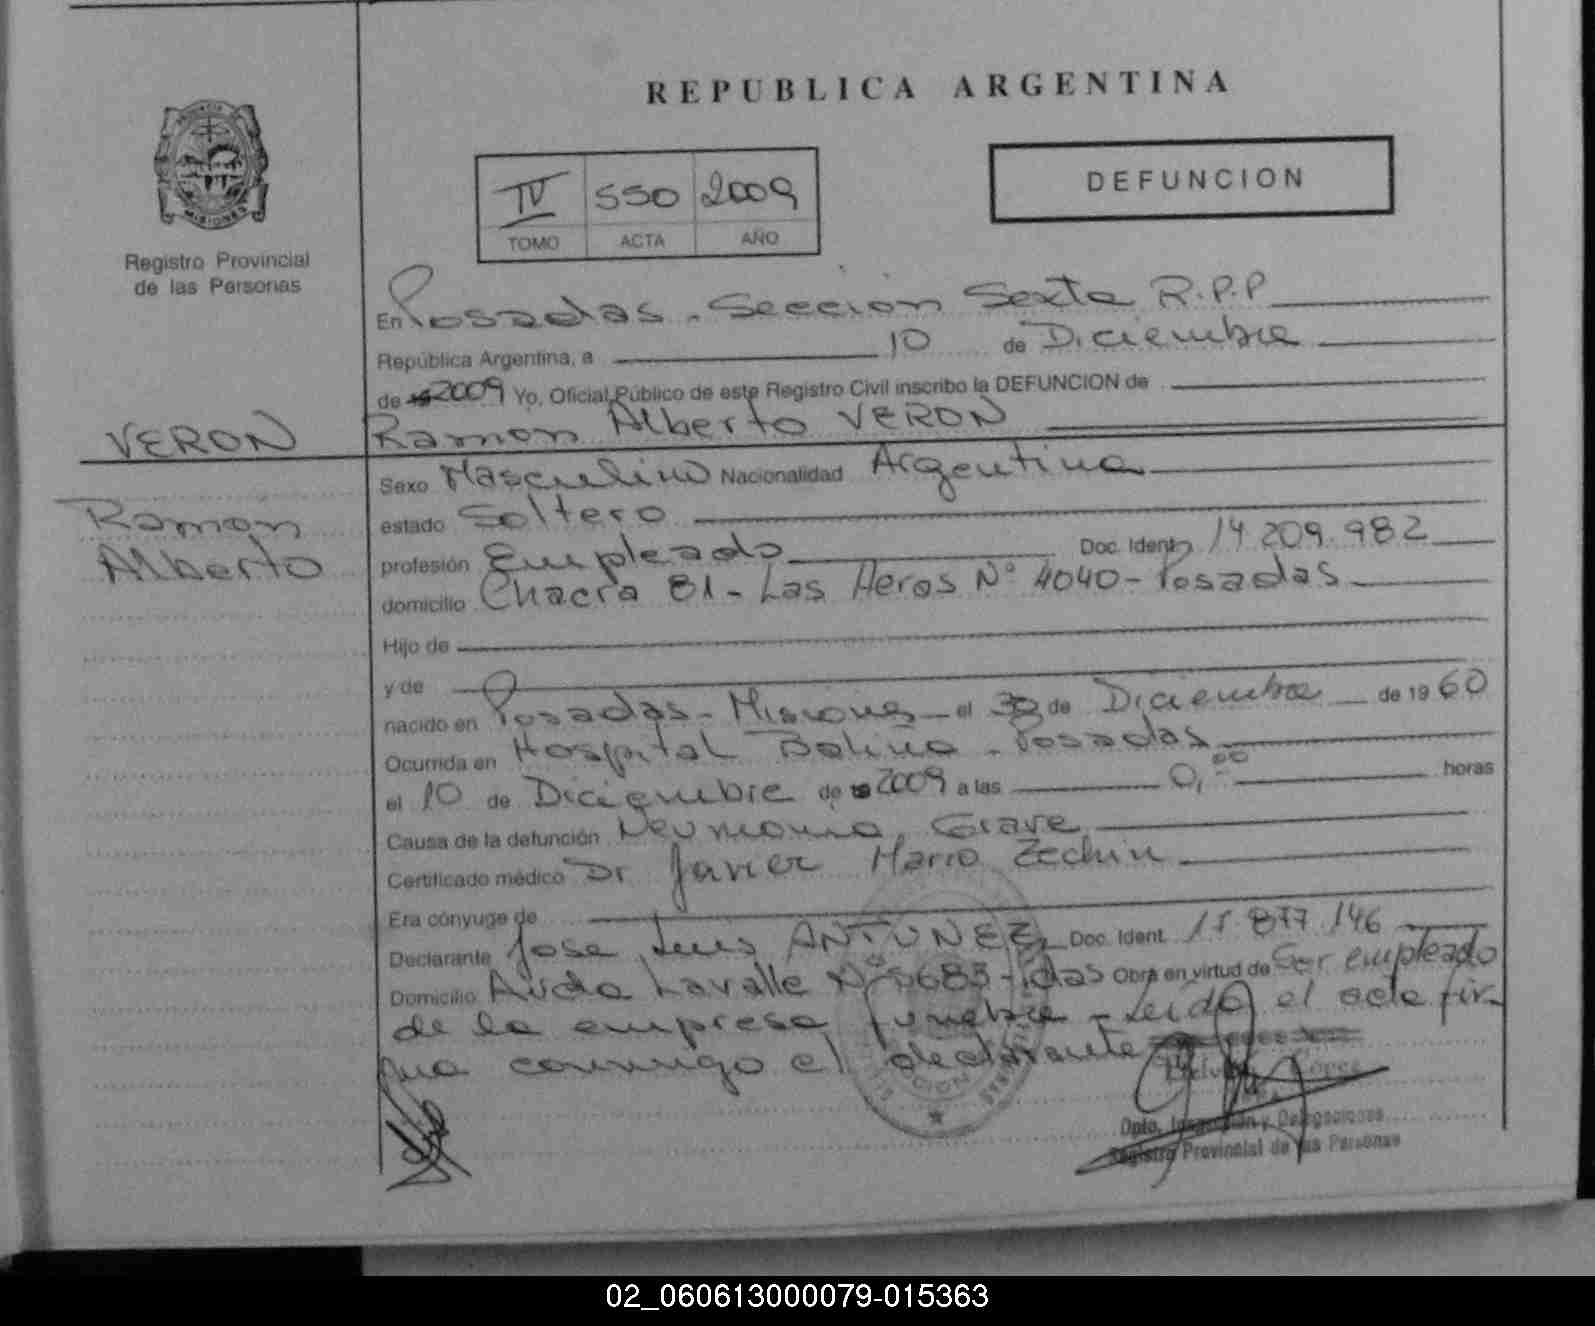 REPUBLICA ARGENTINA
PROVINCIA
MISIONES
Registro Provincial
de las Personas
IV 550 2009
TOMO ACTA AÑO
DEFUNCION
En Posadas - Sección Sexta R.P.P
República Argentina, a 10 de Diciembre
de 19 2009 Yo, Oficial Público de este Registro Civil inscribo la DEFUNCION de
VERON
Ramon Alberto VERON
Ramón
Alberto
Sexo Masculino Nacionalidad Argentina
estado Soltero
profesión Empleado Doc. Ident. 14.209.982
domicilio Chacra 81 - Las Heras Nº 4040 - Posadas
Hijo de
y de
nacido en Posadas - Misiones el de Diciembre de 1960
Ocurrida en Hospital Posadas
el 10 de Diciembre de 19 2009 a las 0,00 horas
Causa de la defunción Neumonia Grave
Certificado médico Dr Javier Mario Zechin
Era cónyuge de
Declarante Jose Luis ANTUNEZ Doc. Ident. 877.146
Domicilio Avda Lavalle Nº 5683 - Pdas Obra en virtud de Ser empleado
de la empresa funebre - Leída el acta fir-
ma conmigo el declarante
Dpto. Inspección y Delegaciones
Registro Provincial de las Personas
02_060613000079-015363